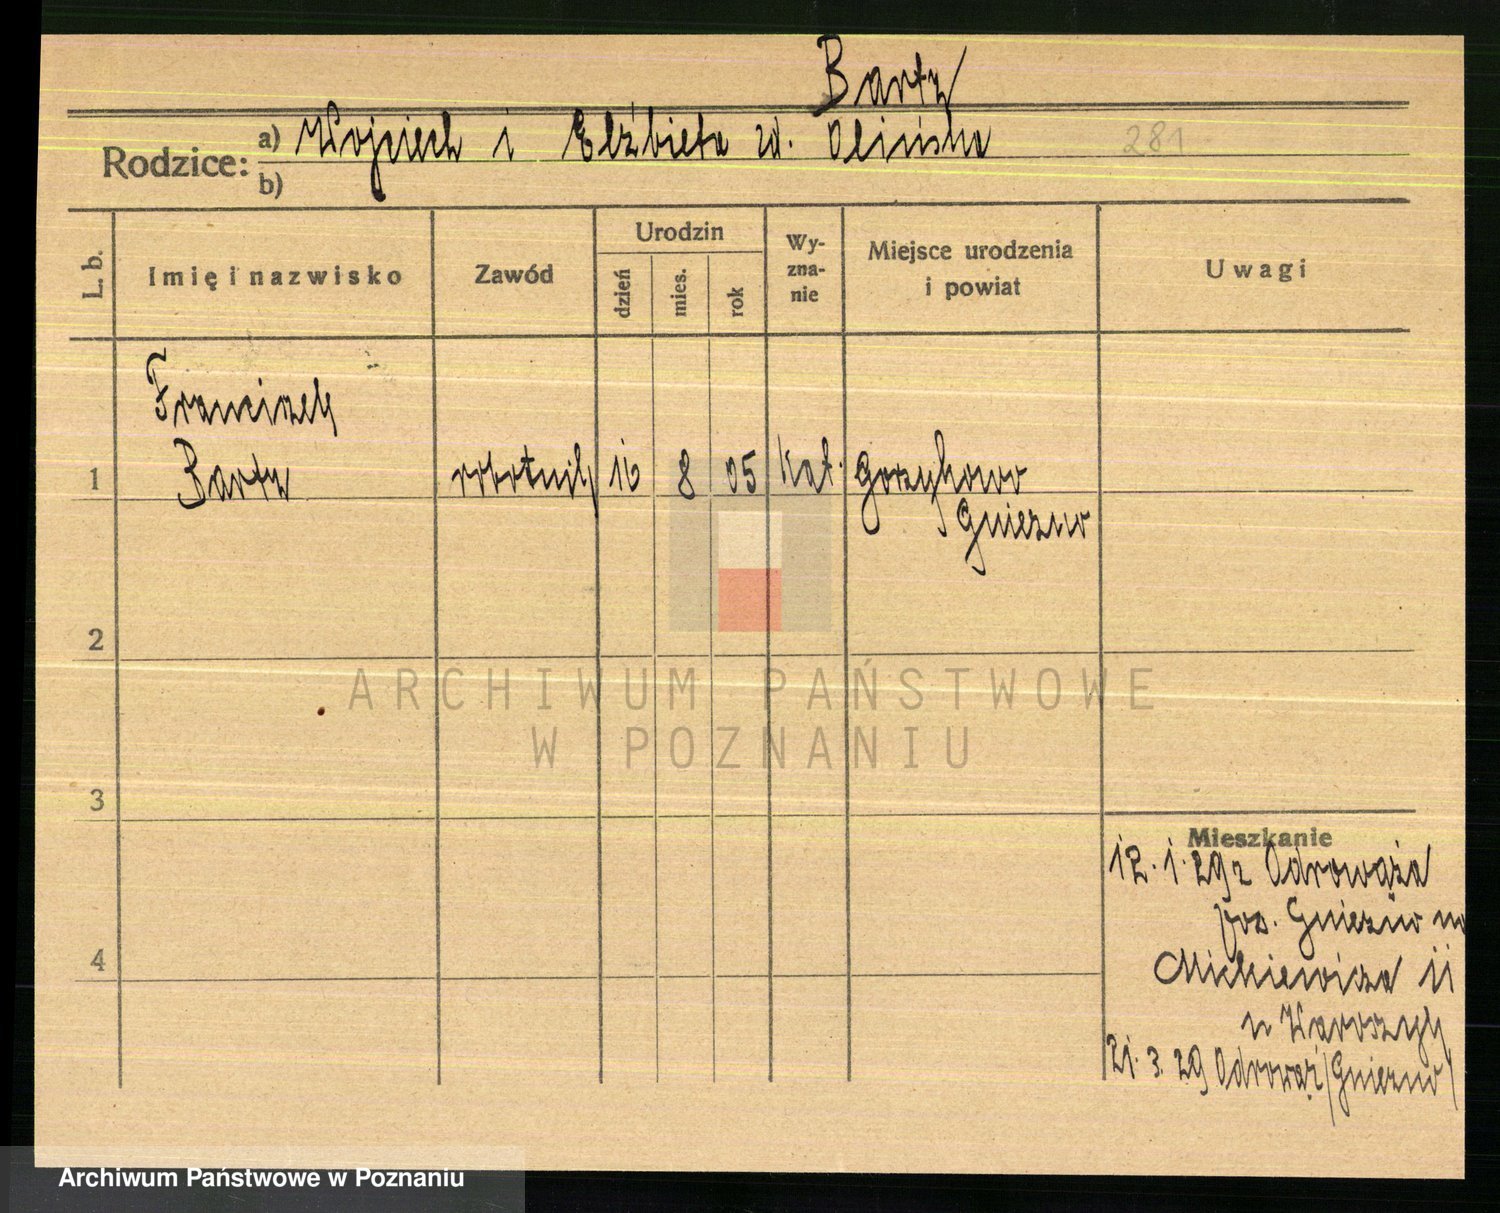 Bartz
Rodzice: a) Wojciech i Elżbieta zd. Olińska
281
b)
L. b.
Imię i nazwisko
Zawód
Urodzin
dzień
mies.
rok
Wy-
zna-
nie
Miejsce urodzenia
i powiat
Uwagi
Franciszek
1 Bartz robotnik 16 8 05 kat. Gorzykowo
Gniezno
2
3
4
Mieszkanie
12.1.29 z Odrowąża
pow. Gniezno na
Mickiewicza 11
u
21.3.29 Odrowąż (Gniezno)
ARCHIWUM PAŃSTWOWE
W POZNANIU
Archiwum Państwowe w Poznaniu